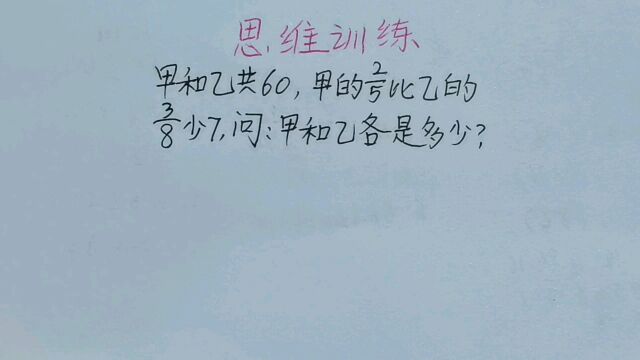 思维训练
甲和乙共60,甲的2/5比乙的
3/8少7,问:甲和乙各是多少?